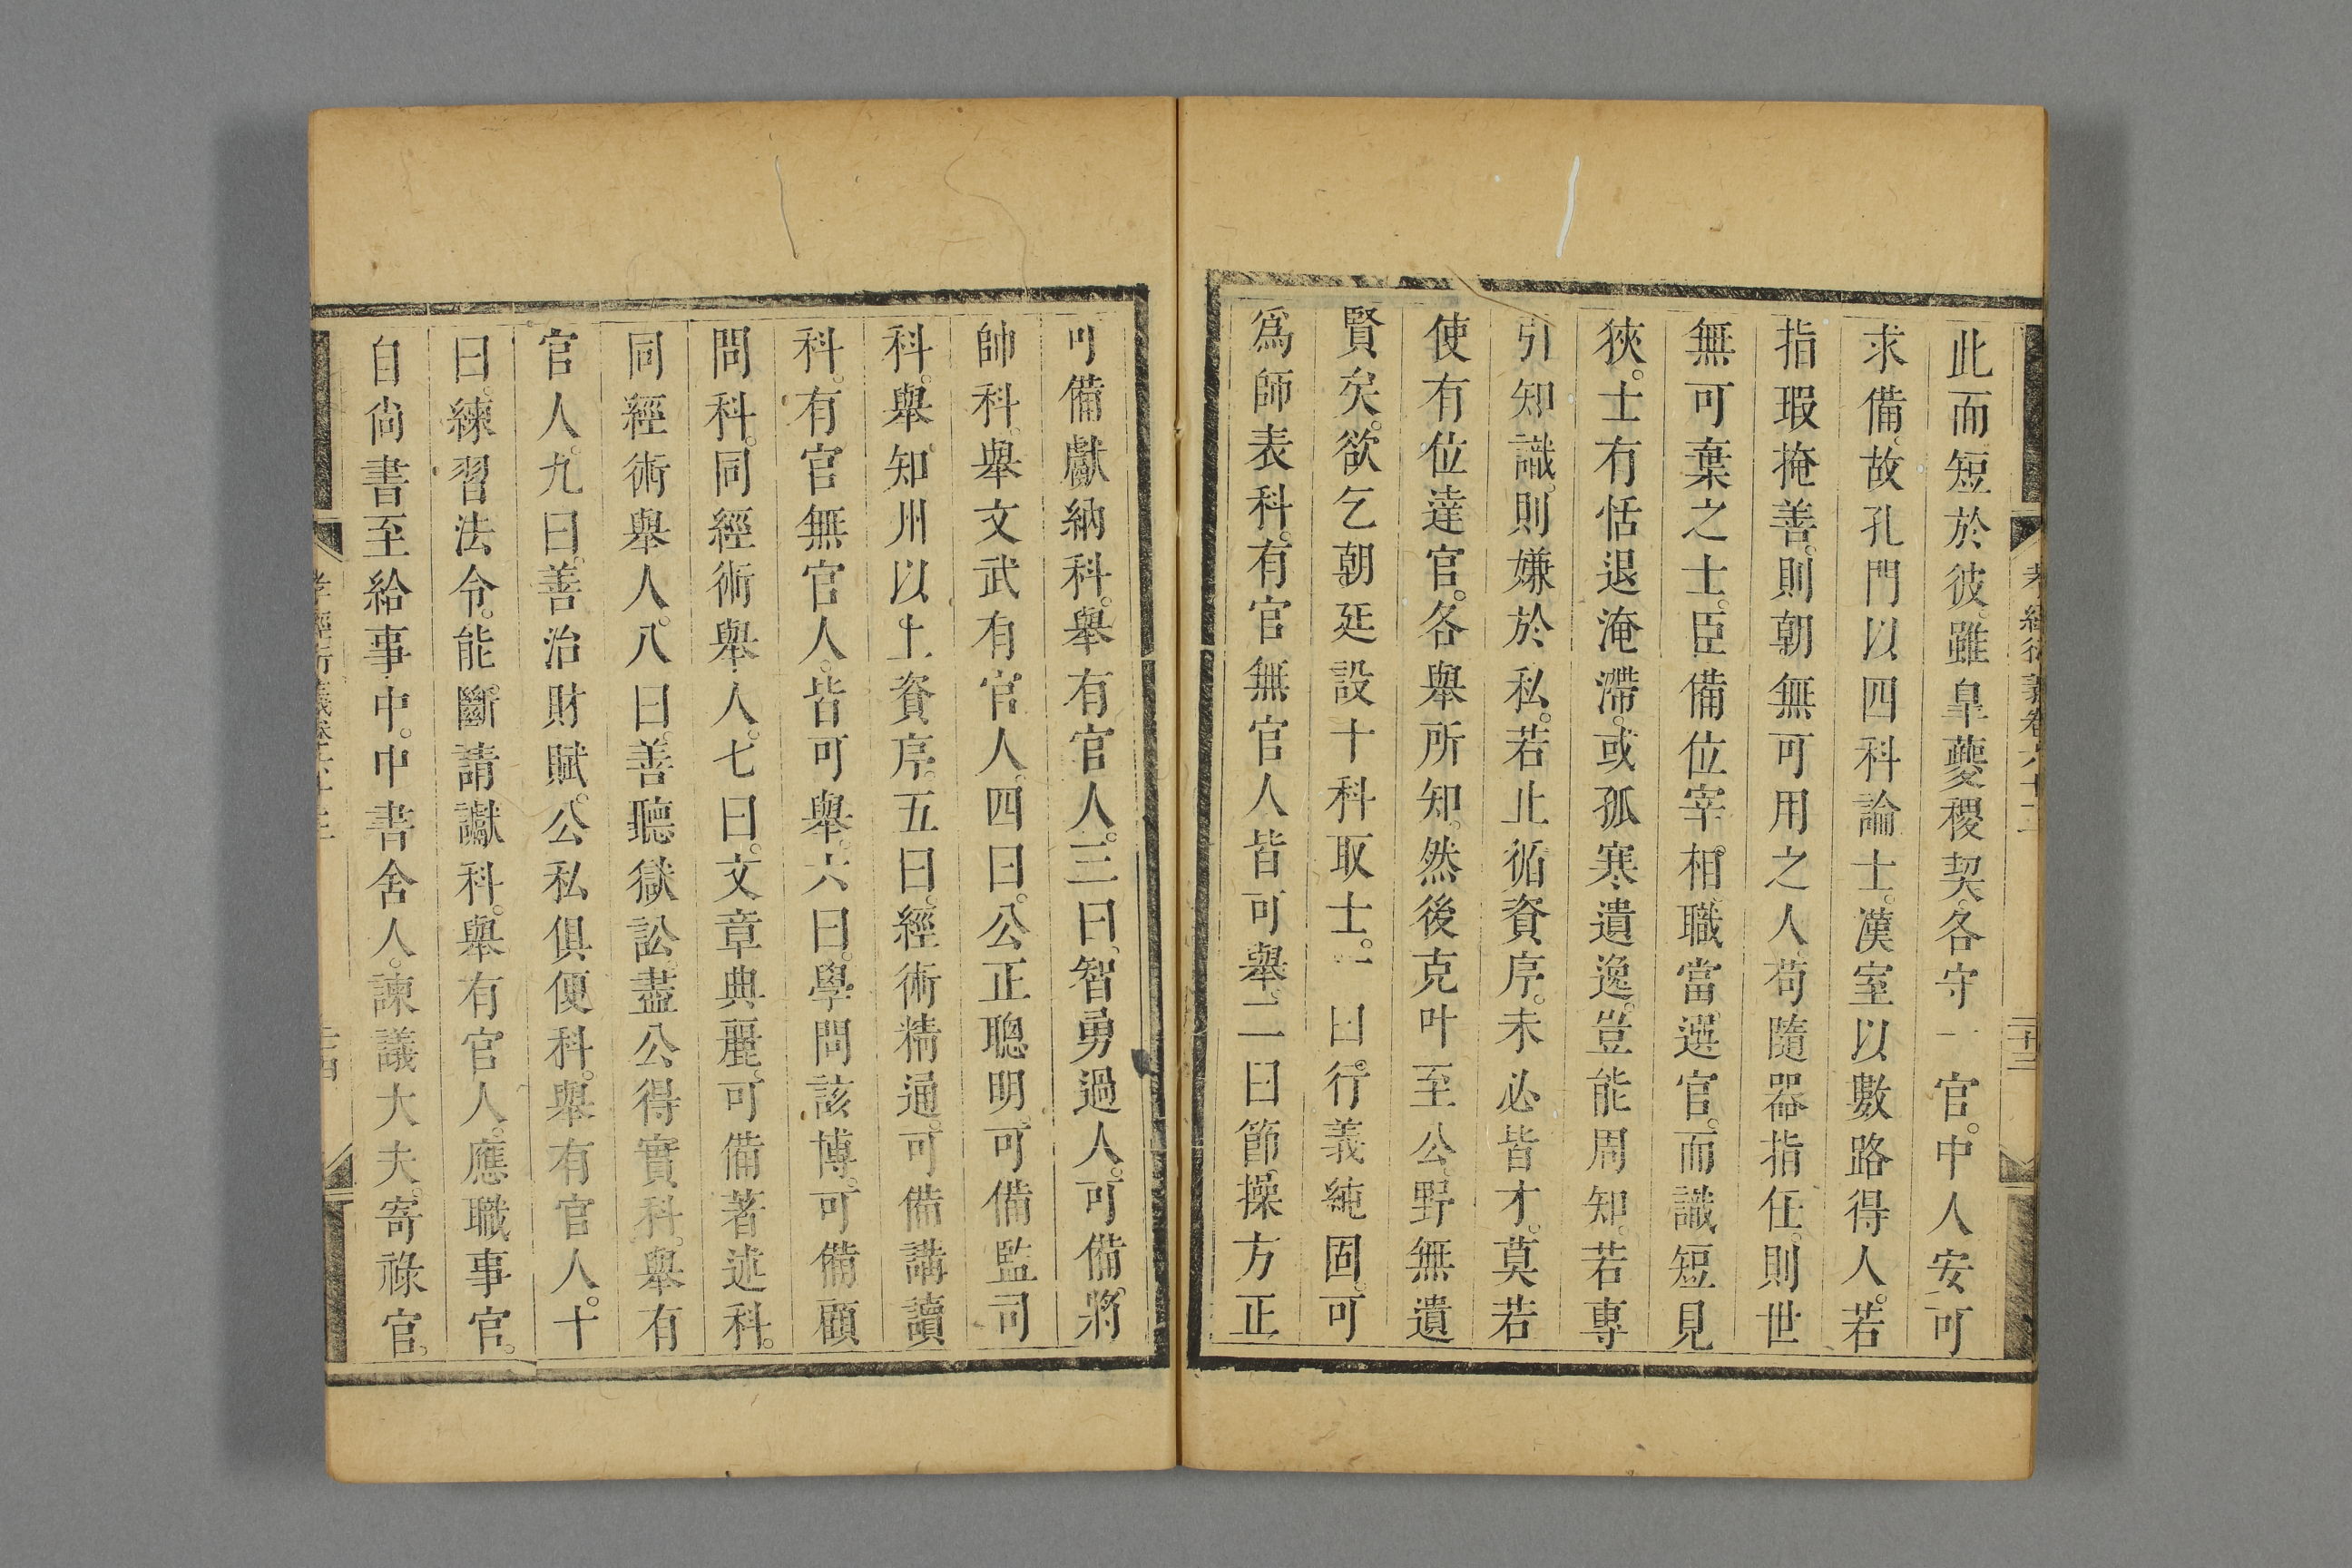 此而短於彼。雖皐夔稷契。各守一官。中人安可
求備。故孔門以四科論士。漢室以數路得人。若
指瑕掩善。則朝無可用之人。苟隨器指任。則世
無可棄之士。臣備位宰相。職當選官。而識短見
狹。士有恬退淹滯。或孤寒遺逸。豈能周知。若專
引知識。則嫌於私。若止循資序。未必皆才。莫若
使有位達官。各舉所知。然後克叶至公。野無遺
賢矣。欲乞朝廷設十科取士。一曰。行義純固。可
爲師表科。有官無官人皆可舉。二曰節操方正
可備獻納科。舉有官人。三曰。智勇過人。可備將
帥科。舉文武有官人。四曰。公正聰明。可備監司
科。舉知州以上資序。五曰。經術精通。可備講讀
科。有官無官人。皆可舉。六曰。學問該博。可備顧
問科。同經術舉人。七曰。文章典麗。可備著述科。
同經術舉人。八曰。善聽獄訟。盡公得實科。舉有
官人。九曰。善治財賦。公私俱便科。舉有官人。十
曰。練習法令。能斷請讞科。舉有官人。應職事官。
自尚書至給事中。中書舍人。諫議大夫。寄祿官。